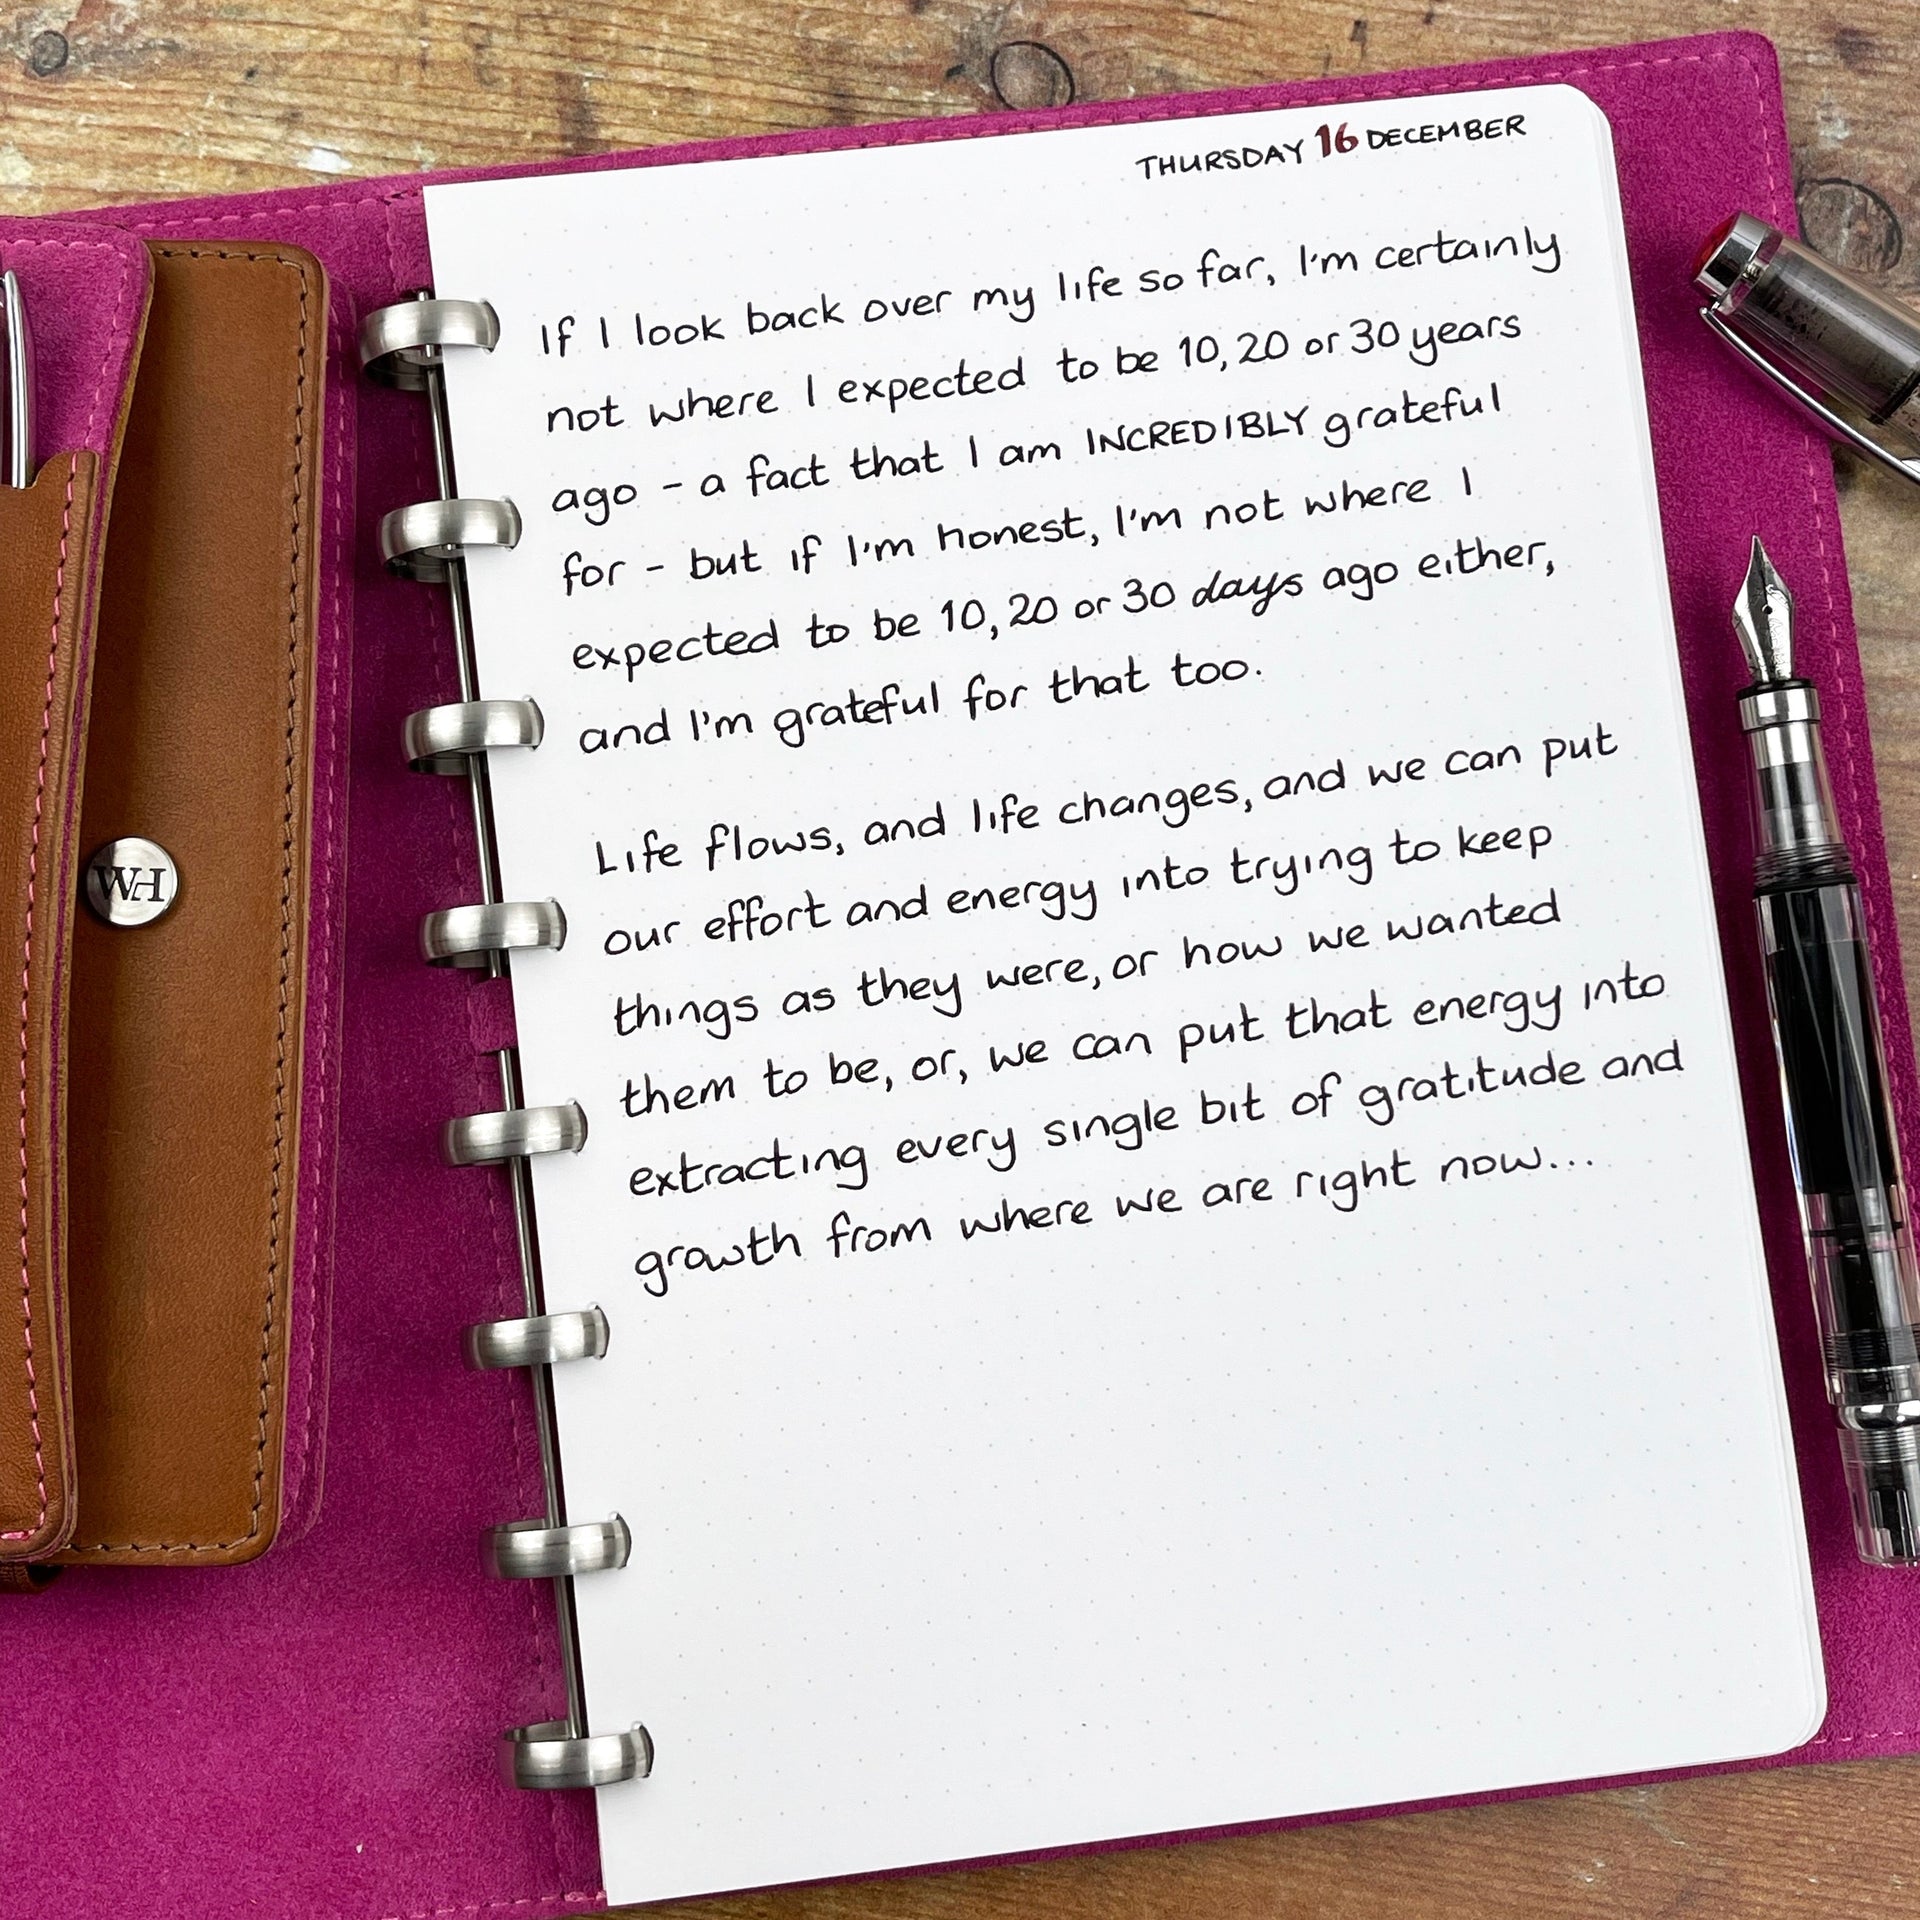 THURSDAY 16 DECEMBER
If I look back over my life so far, I'm certainly
not where I expected to be 10, 20 or 30 years
ago - a fact that I am INCREDIBLY grateful
for - but if I'm honest, I'm not where I
expected to be 10, 20 or 30 days ago either,
and I'm grateful for that too.
Life flows, and life changes, and we can put
our effort and energy into trying to keep
things as they were, or how we wanted
them to be, or, we can put that energy into
extracting every single bit of gratitude and
growth from where we are right now...
WH